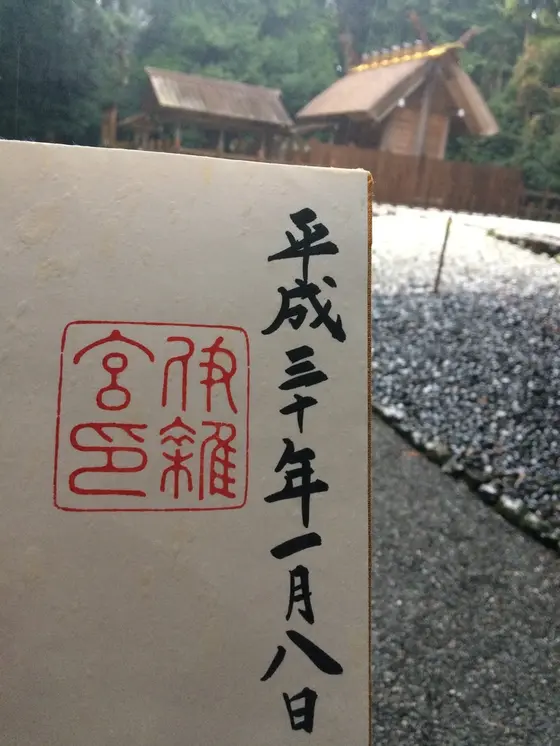 平成三十年一月八日
伊雜
宮印